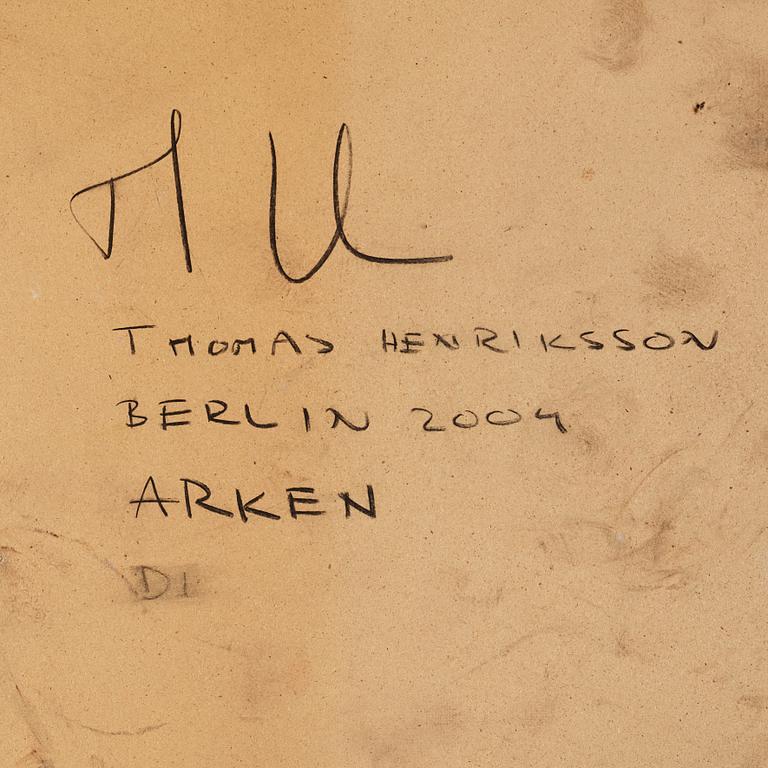 THOMAS HENRIKSSON
BERLIN 2004
ARKEN
DI